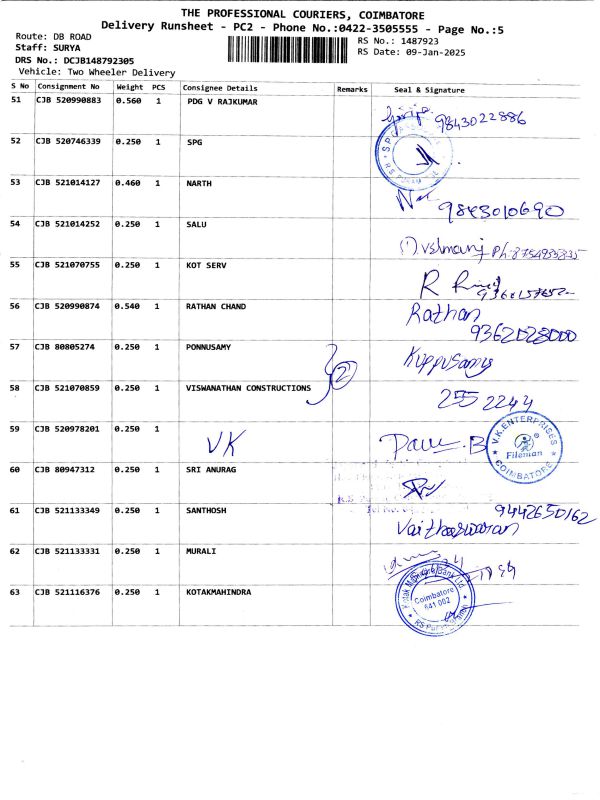 THE PROFESSIONAL COURIERS, COIMBATORE
Delivery Runsheet - PC2 - Phone No.:0422-3505555 - Page No.:5
Route: DB ROAD
RS No.: 1487923
Staff: SURYA
RS Date: 09-Jan-2025
DRS No.: DCJB148792305
Vehicle: Two Wheeler Delivery
S No Consignment No Weight PCS Consignee Details Remarks Seal & Signature
51 CJB 520990883 0.560 1 PDG V RAJKUMAR
9843022886
52 CJB 520746339 0.250 1 SPG
53 CJB 521014127 0.460 1 NARTH
9843010690
54 CJB 521014252 0.250 1 SALU
55 CJB 521070755 0.250 1 KOT SERV
56 CJB 520990874 0.540 1 RATHAN CHAND Rathan
9362028000
57 CJB 80805274 0.250 1 PONNUSAMY Kuppusamy
2
58 CJB 521070859 0.250 1 VISWANATHAN CONSTRUCTIONS 255 2244
59 CJB 520978201 0.250 1 VK
V.K.ENTERPRISES
Fileman
COIMBATORE
60 CJB 80947312 0.250 1 SRI ANURAG
61 CJB 521133349 0.250 1 SANTHOSH 9442650162
62 CJB 521133331 0.250 1 MURALI
63 CJB 521116376 0.250 1 KOTAKMAHINDRA
Coimbatore
641 002